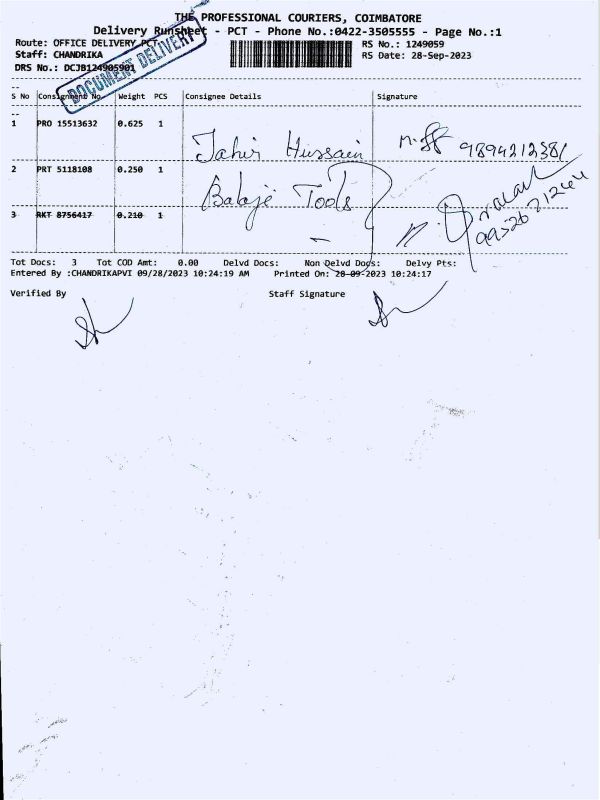 THE PROFESSIONAL COURIERS, COIMBATORE
Delivery Runsheet - PCT - Phone No.:0422-3505555 - Page No.:1
Route: OFFICE DELIVERY PCT
RS No.: 1249059
Staff: CHANDRIKA
RS Date: 28-Sep-2023
DRS No.: DCJB124905901
DOCUMENT DELIVERY
S No Consignment No. Weight PCS Consignee Details Signature
1 PRO 15513632 0.625 1
Jahir Hussain 9894212381
2 PRT 5118108 0.250 1
Balaje Tools
3 RKT 8756417 0.210 1
Tot Docs: 3 Tot COD Amt: 0.00 Delvd Docs: Non Delvd Docs: Delvy Pts:
Entered By :CHANDRIKAPVI 09/28/2023 10:24:19 AM Printed On: 28-09-2023 10:24:17
Verified By Staff Signature